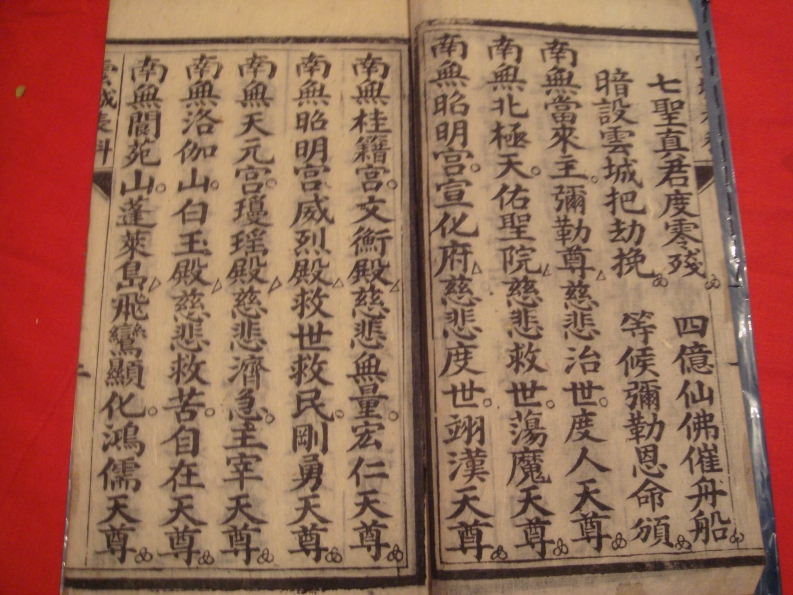 七聖真君度零殘 四億仙佛催舟船
暗設雲城把劫挽 等候彌勒恩命頒
南無當來主彌勒尊慈悲治世度人天尊
南無北極天佑聖院慈悲救世蕩魔天尊
南無昭明宮宣化府慈悲度世翊漢天尊
南無桂籍宮文衡殿慈悲無量宏仁天尊
南無昭明宮威烈殿救世救民剛勇天尊
南無天元宮瓊瑤殿慈悲濟急主宰天尊
南無洛伽山白玉殿慈悲救苦自在天尊
南無閬苑山蓬萊島飛鸞顯化鴻儒天尊
雲城表科 二